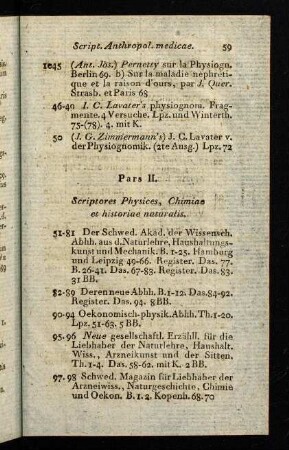 Script. Anthropol. medicae. 59
1045 (Ant. Jos.) Pernetty sur la Physiogn.
Berlin 69. b) Sur la maladie nephréti-
que et la raison d'ours, par J. Quer.
Strasb. et Paris 68
46-49 J. C. Lavater's physiognom. Frag-
mente. 4 Versuche. Lpz. und Winterth.
75-(78). 4. mit K.
50 (J. G. Zimmermann's) J. C. Lavater v.
der Physiognomik. (2te Ausg.) Lpz. 72
Pars II.
Scriptores Physices, Chimiae
et historiae naturalis.
51-81 Der Schwed. Akad. der Wissensch.
Abhh. aus d. Naturlehre, Haushaltungs-
kunst und Mechanik. B. 1-25. Hamburg
und Leipzig 49-66. Register. Das. 77.
B. 26-41. Das. 67-83. Register. Das. 83.
31 BB.
82-89 Deren neue Abhh. B. 1-12. Das. 84-92.
Register. Das. 94. 8 BB.
90-94 Oekonomisch-physik. Abhh. Th. 1-20.
Lpz. 51-63. 5 BB.
95. 96 Neue gesellschaftl. Erzähll. für die
Liebhaber der Naturlehre, Haushalt.
Wiss., Arzneikunst und der Sitten.
Th. 1-4. Das. 58-62. mit K. 2 BB.
97. 98 Schwed. Magazin für Liebhaber der
Arzneiwiss., Naturgeschichte, Chimie
und Oekon. B. 1. 2. Kopenh. 68. 70